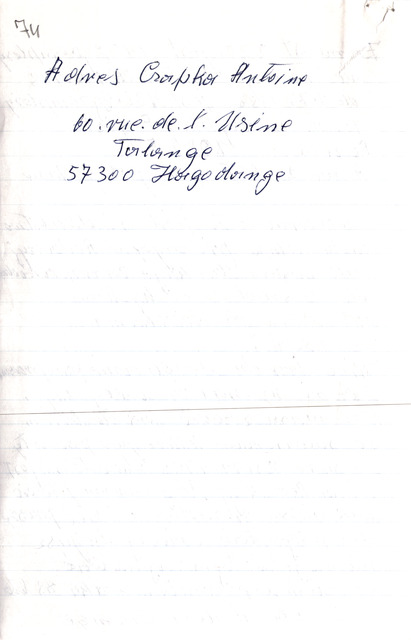 74
Adres Czapka Antoine
60. rue. de. l. Usine
Talange
57300 Hagodange